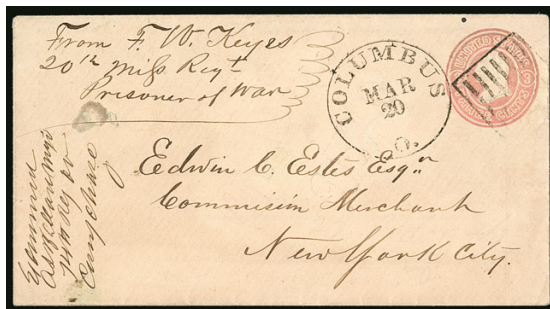 From F. W. Keyes
20th Miss Regt
Prisoner of War
COLUMBUS
MAR
20
O.
UNITED STATES
3
Edwin C. Estes Esqr
Commission Merchant
New York City.
Examined
Camp Chase